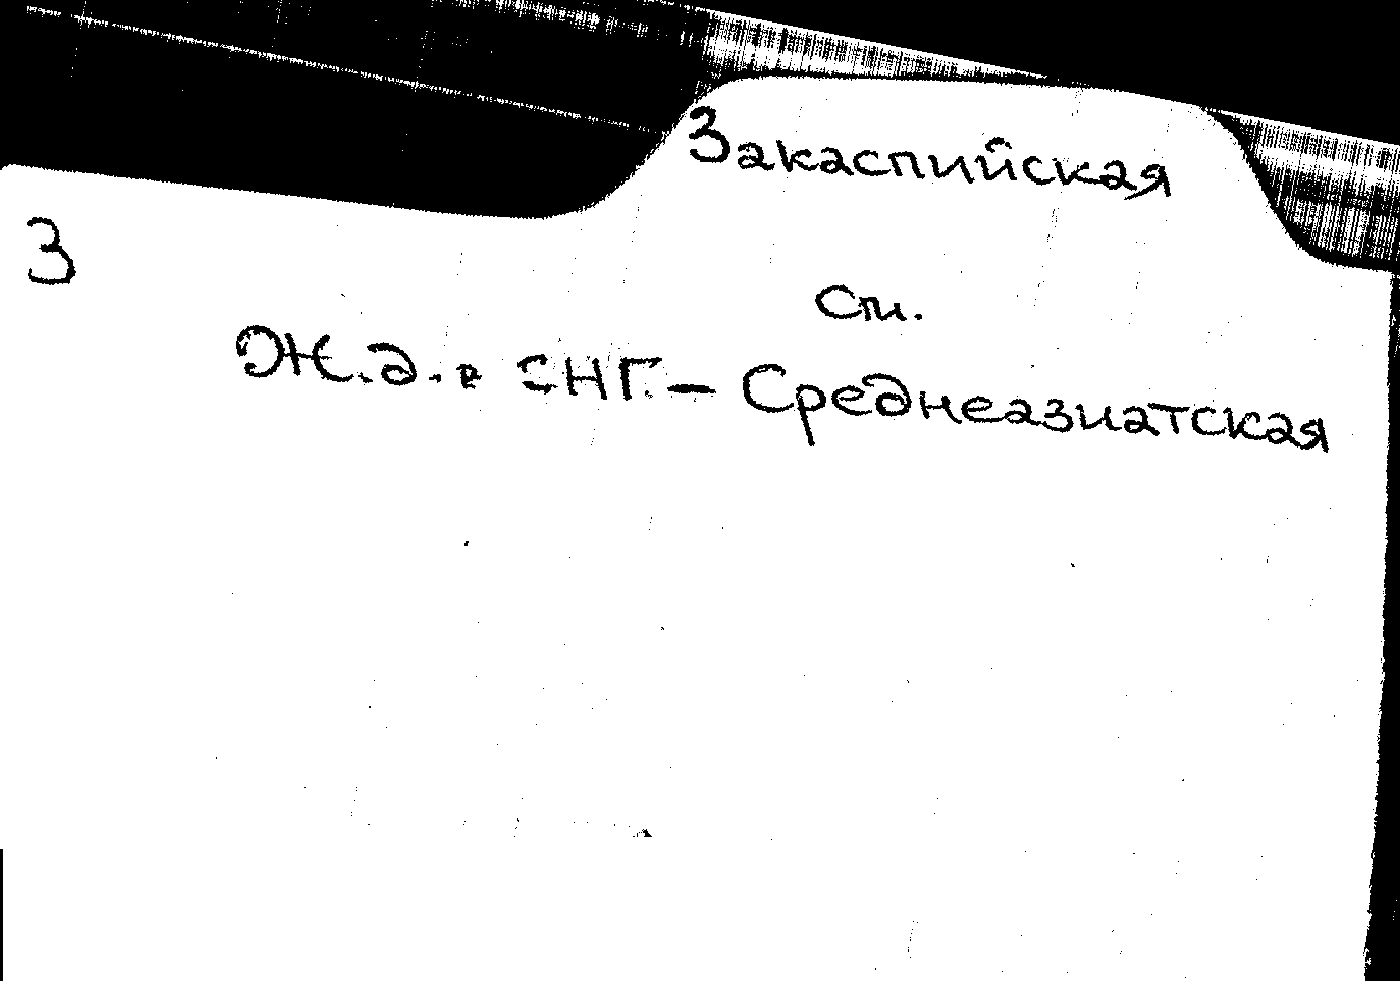 Закаспийская
З
см.
Ж.д. в СНГ. – Среднеазиатская